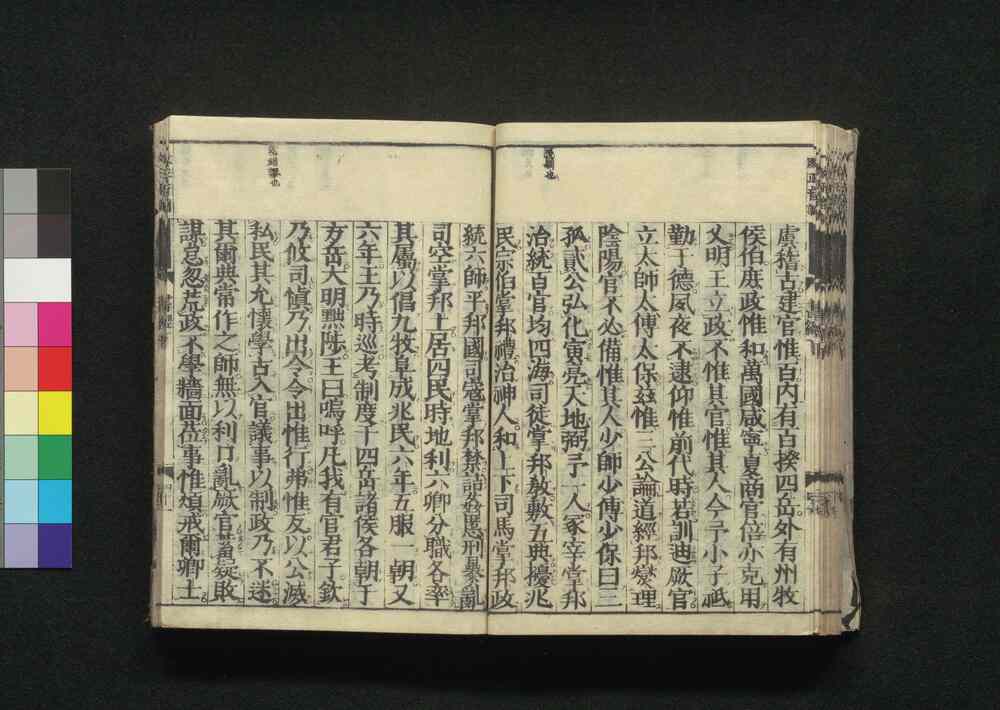 虞稽古建官惟百内有百揆四岳外有州牧
侯伯庶政惟和萬國咸寧夏商官倍亦克用
乂明王立政不惟其官惟其人今予小子祗
勤于德夙夜不逮仰惟前代時若訓迪厥官
立太師太傅太保茲惟三公論道經邦燮理
陰陽官不必備惟其人少師少傅少保曰三
孤貳公弘化寅亮天地弼予一人冢宰掌邦
治統百官均四海司徒掌邦教敷五典擾兆
民宗伯掌邦禮治神人和上下司馬掌邦政
統六師平邦國司寇掌邦禁詰姦慝刑暴亂
司空掌邦土居四民時地利六卿分職各率
其屬以倡九牧阜成兆民六年五服一朝又
六年王乃時巡考制度于四岳諸侯各朝于
方岳大明黜陟王曰嗚呼凡我有官君子欽
乃攸司慎乃出令令出惟行弗惟反以公滅
私民其允懷學古入官議事以制政乃不迷
其爾典常作之師無以利口亂厥官蓄疑敗
謀怠忽荒政不學牆面莅事惟煩戒爾卿士